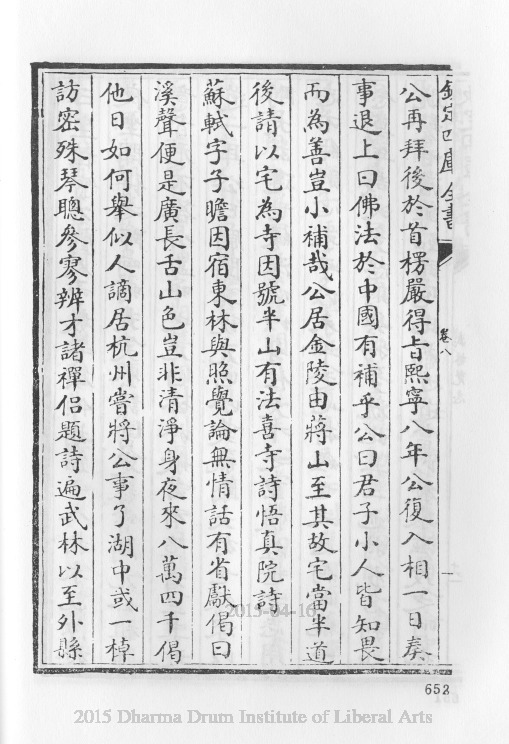 欽定四庫全書
卷八
公再拜後於首楞嚴得旨熙寧八年公復入相一日奏
事退上曰佛法於中國有補乎公曰君子小人皆知畏
而為善豈小補哉公居金陵由蔣山至其故宅當半道
後請以宅為寺因號半山有法喜寺詩悟真院詩
蘇軾字子瞻因宿東林與照覺論無情話有省獻偈曰
溪聲便是廣長舌山色豈非清淨身夜來八萬四千偈
他日如何舉似人謫居杭州嘗將公事了湖中或一棹
訪密殊琴聰參寥辨才諸禪侶題詩遍武林以至外縣
2015-04-16
652
2015 Dharma Drum Institute of Liberal Arts